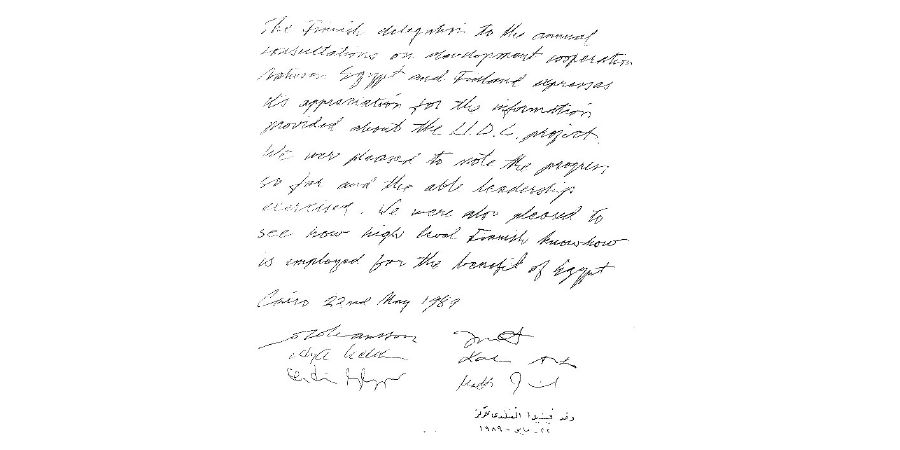 The Finnish delegation to the annual
consultations on development cooperation
between Egypt and Finland expresses
its appreciation for the information
provided about the L.D.C. project.
We were pleased to note the progress
so far and the able leadership
exercised. We were also pleased to
see how high level Finnish knowhow
is employed for the benefit of Egypt
Cairo 22nd May 1989
وفد فنلندا
٢٢ - مايو - ١٩٨٩